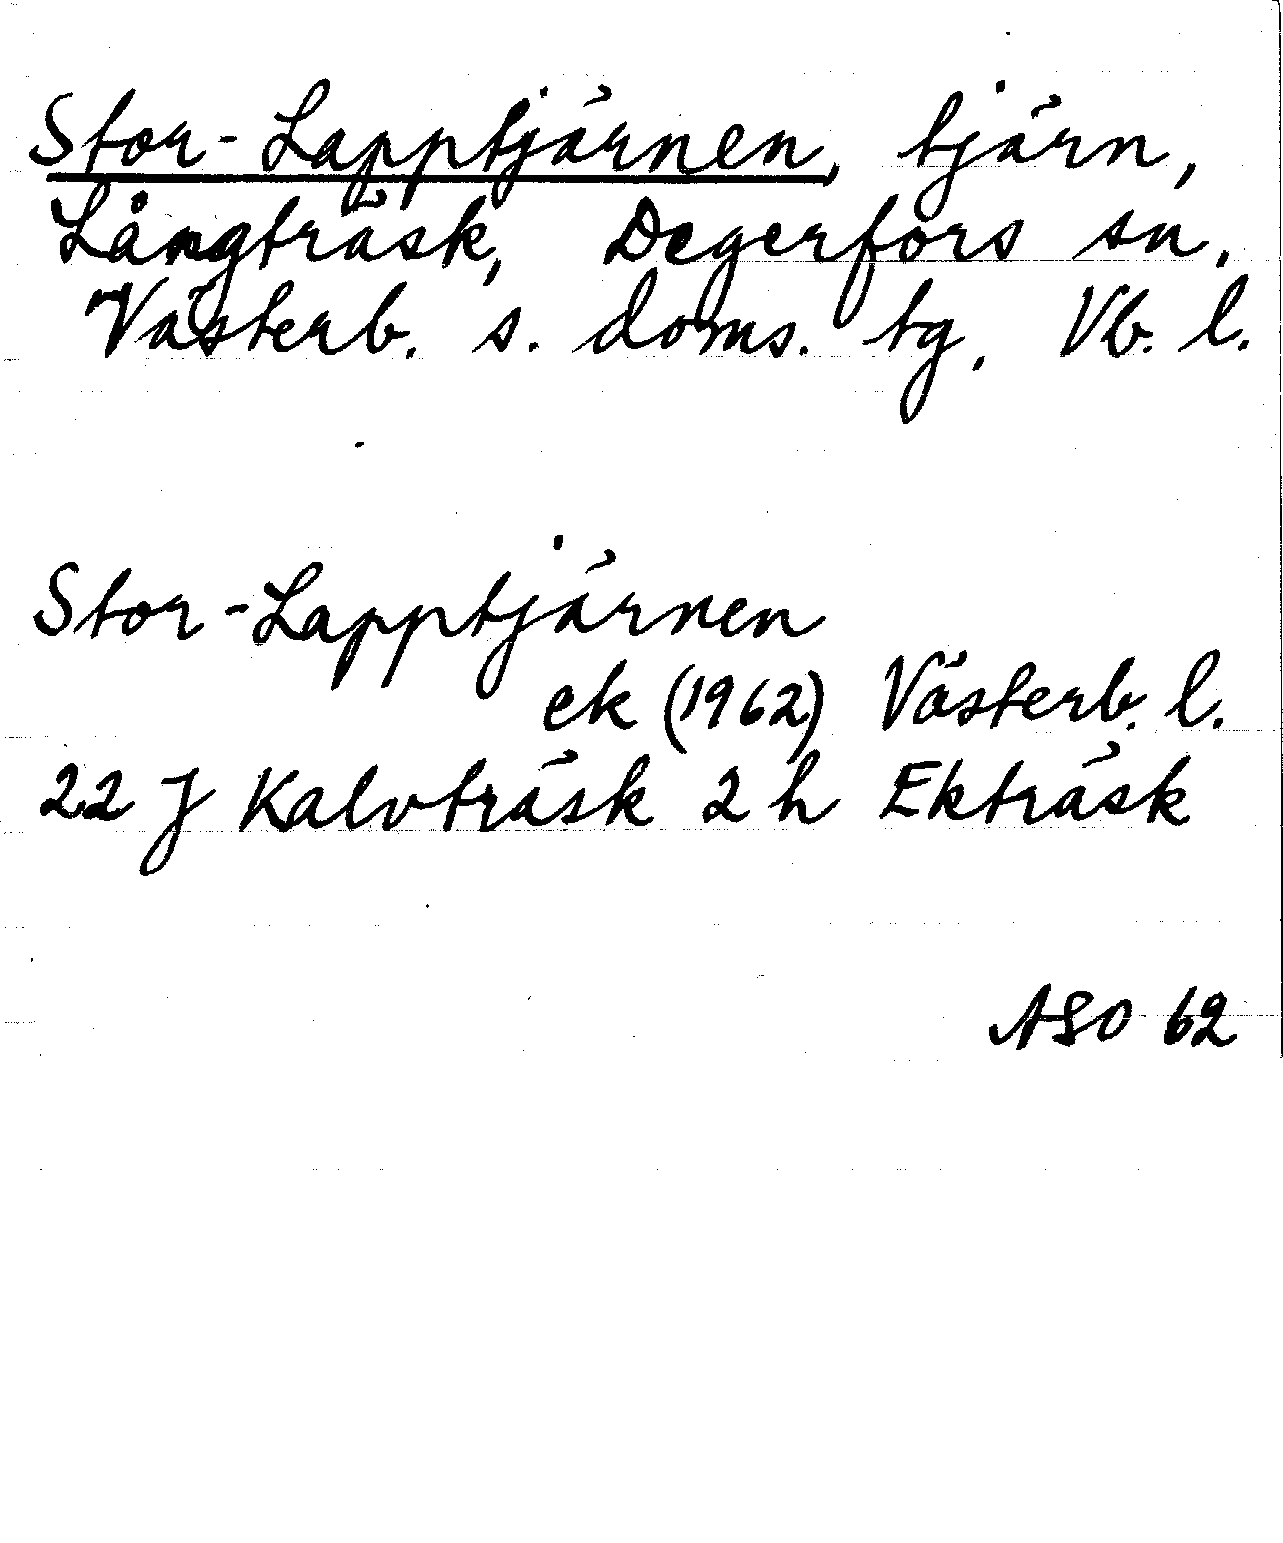 Stor-Lapptjärnen, tjärn,
Långträsk, Degerfors sn,
Västerb. s. doms. tg, Vb. l.
Stor-Lapptjärnen
ek (1962) Västerb. l.
22 J Kalvträsk 2 h Ekträsk
ASO 62